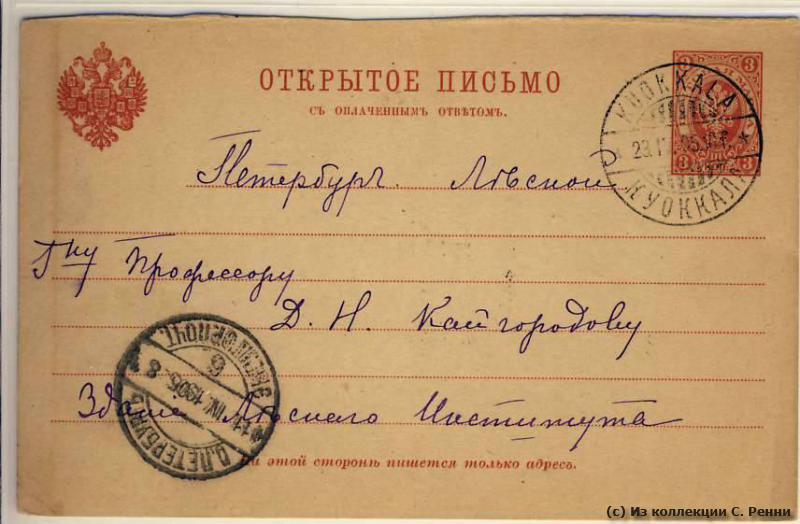 ОТКРЫТОЕ ПИСЬМО
СЪ ОПЛАЧЕННЫМЪ ОТВѢТОМЪ.
3 3
3 3
KUOKKALA
КУОККАЛА
Петербургъ. Лѣсной
Гну Профессору
Д. Н. Кайгородову
Зданіе Лѣснаго Института
С.ПЕТЕРБУРГЪ
6
11 IV 1905 8
На этой сторонѣ пишется только адресъ.
(c) Из коллекции С. Ренни